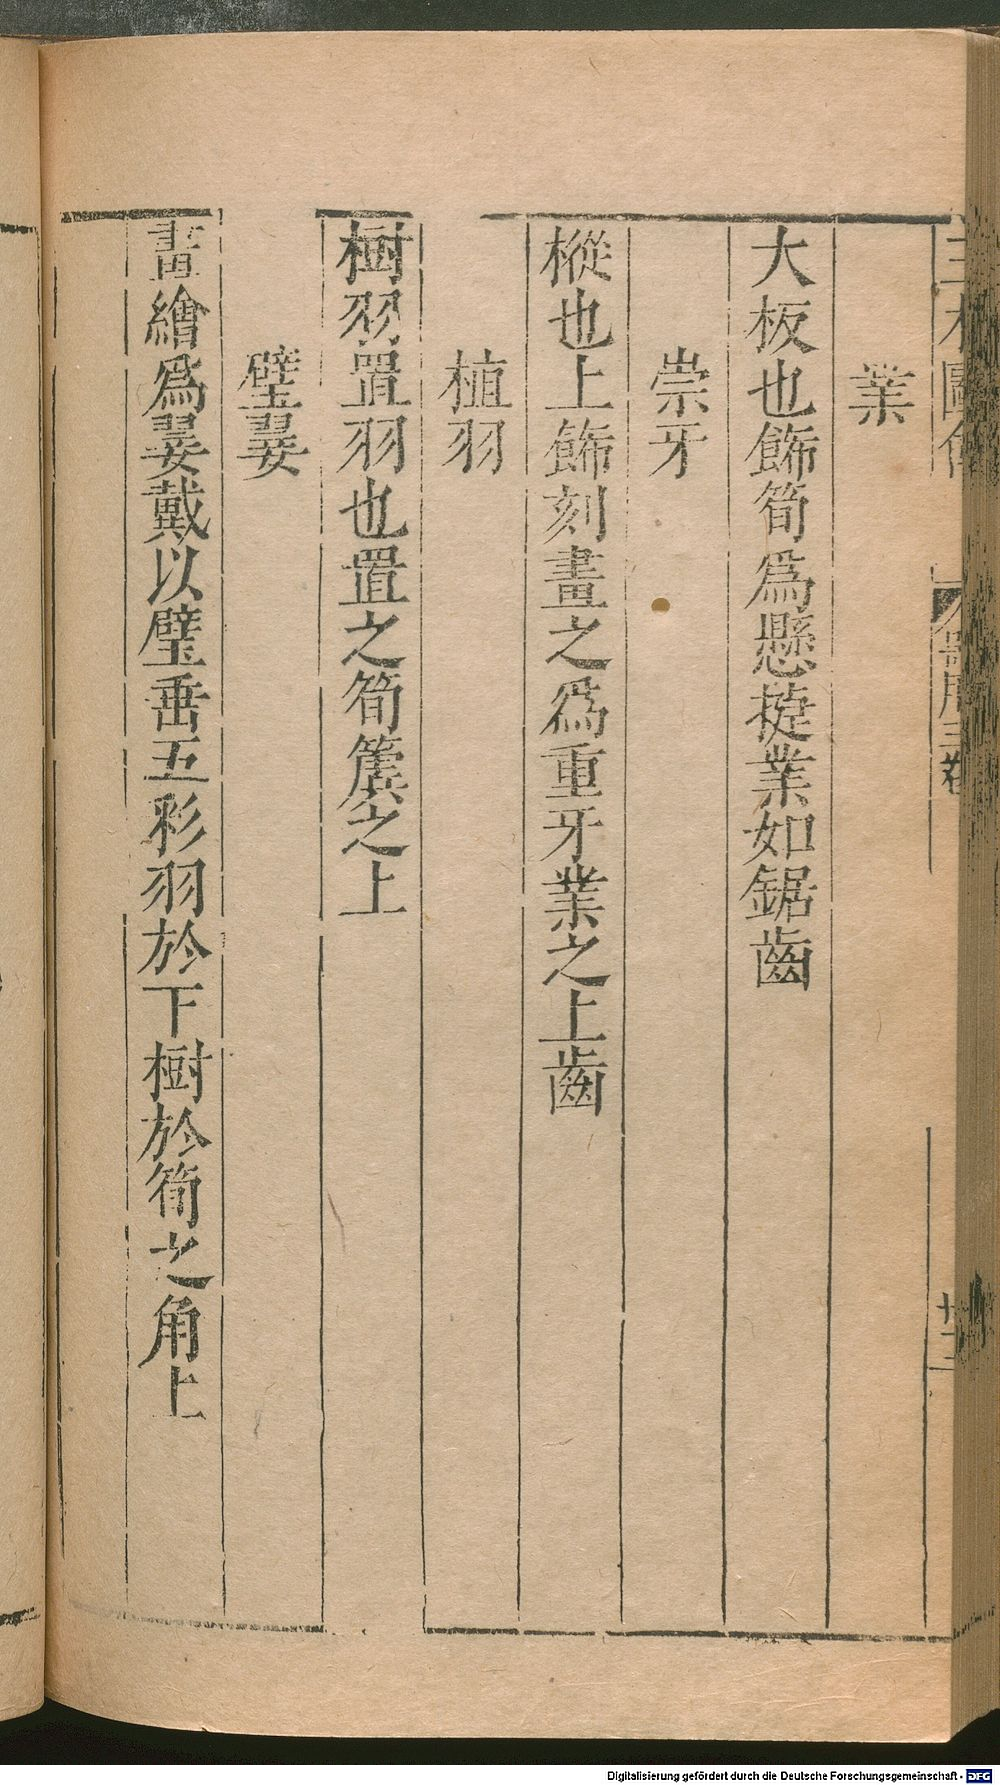 業
大板也飾筍爲懸捷業如鋸齒
崇牙
樅也上飾刻畫之爲重牙業之上齒
植羽
樹羽置羽也置之筍簴之上
璧翣
畫繪爲翣戴以璧垂五彩羽於下樹於筍之角上
Digitalisierung gefördert durch die Deutsche Forschungsgemeinschaft - DFG